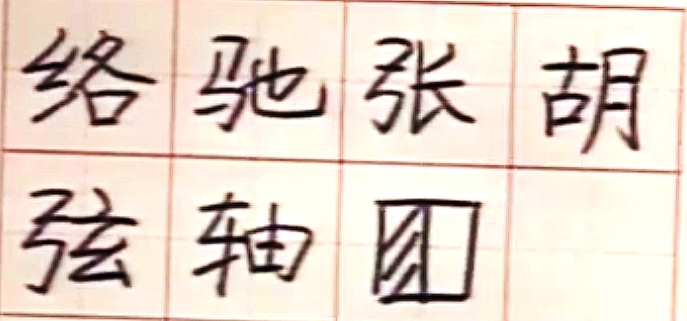 络驰张胡
弦轴